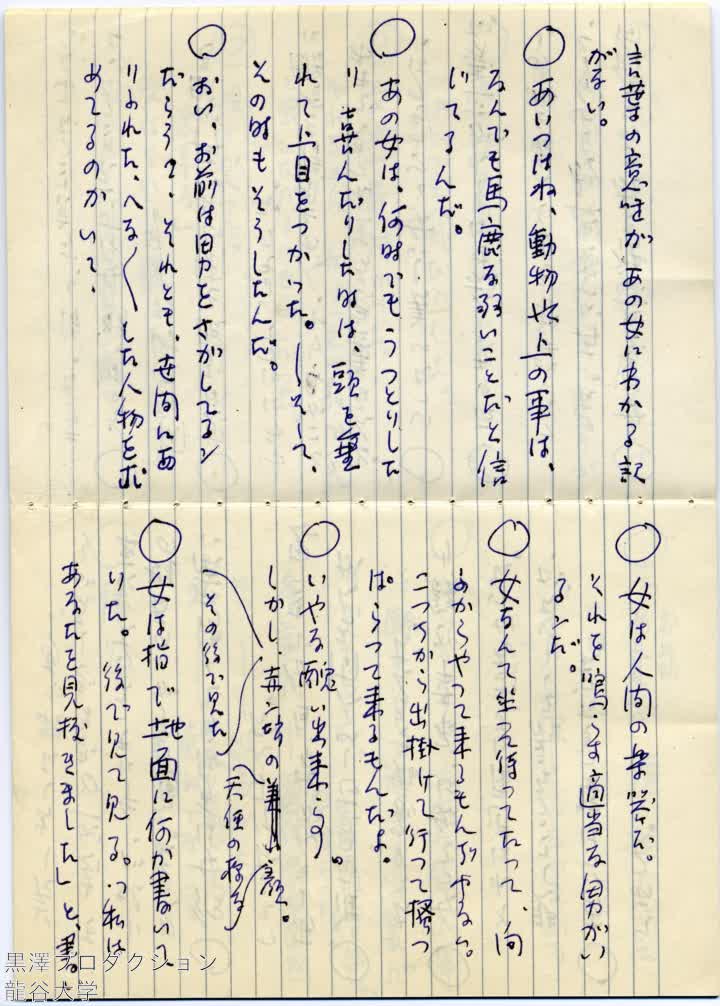 言葉の意味があの女にわかる訳
がない。
○ あいつはね、動物や上の事は、
なんでも馬鹿な弱いことだと信
じてるんだ。
○ あの女は、何時でもうつとりした
り喜んだりした時は、頭を垂
れて上目をつかつた。しそして、
その時もそうしたんだ。
○ おい、お前は男をさがしてるン
だろう?、それとも、世間にあ
りふれた、へなへなした人物を求
めてるのかい?。
○ 女は人間の楽器だ。
それを鳴らす適当な男がい
るンだ。
○ 女なんて坐つて待つてたつて、向
ふからやつて来るもんぢやない。
こつちから出掛けて行つて掻つ
ぱらつて来るもんだよ。
○ いやな醜い出来事。
しかし、赤ン坊の美しい顔。
天使の様な
その後で見た
○ 女は指で地面に何か書ないて
いた。後で見て見る。「私は
あなたを見抜きましたし」と、書
黒澤プロダクション
龍谷大学